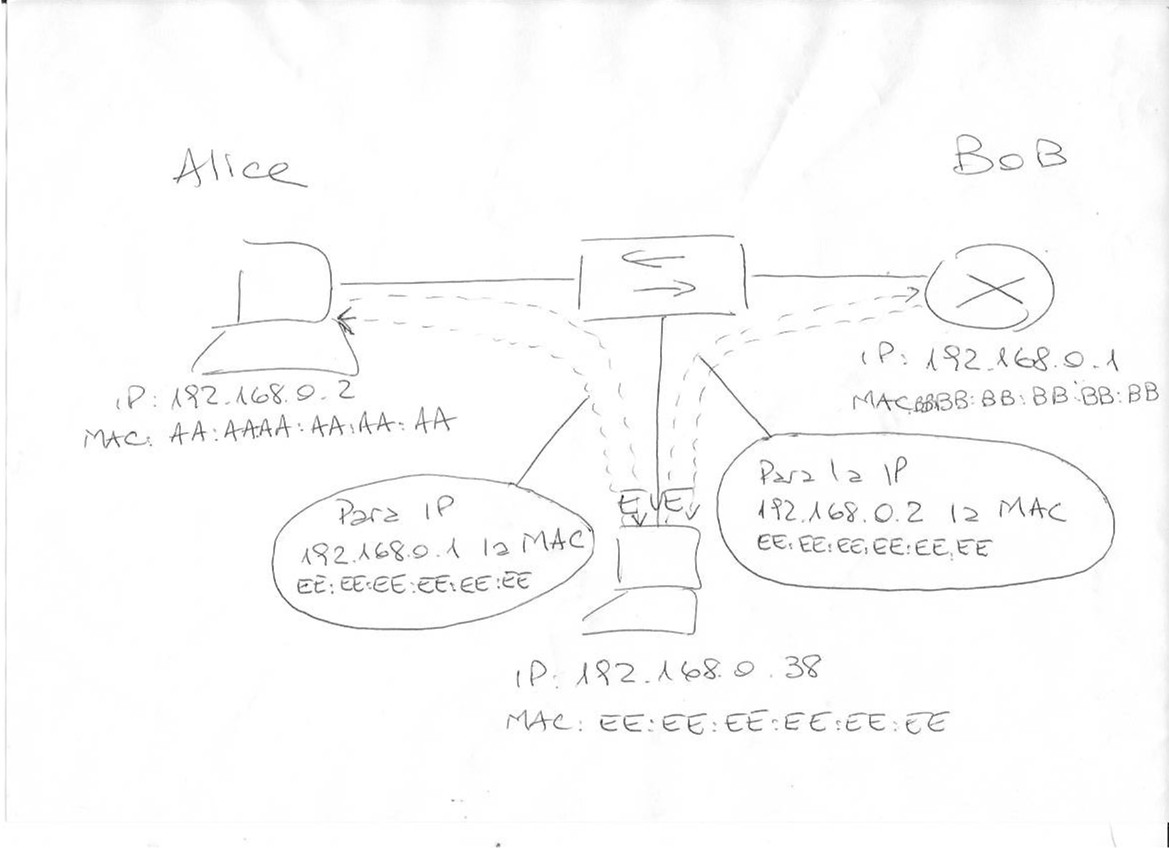 Alice
BoB
IP: 192.168.0.2
MAC: AA:AAAA:AA:AA:AA
IP: 192.168.0.1
MAC:BBBB:BB:BB:BB:BB
EVE
Para IP
192.168.0.1 la MAC
EE:EE:EE:EE:EE:EE
Para la IP
192.168.0.2 la MAC
EE:EE:EE:EE:EE:EE
IP: 192.168.0.38
MAC: EE:EE:EE:EE:EE:EE